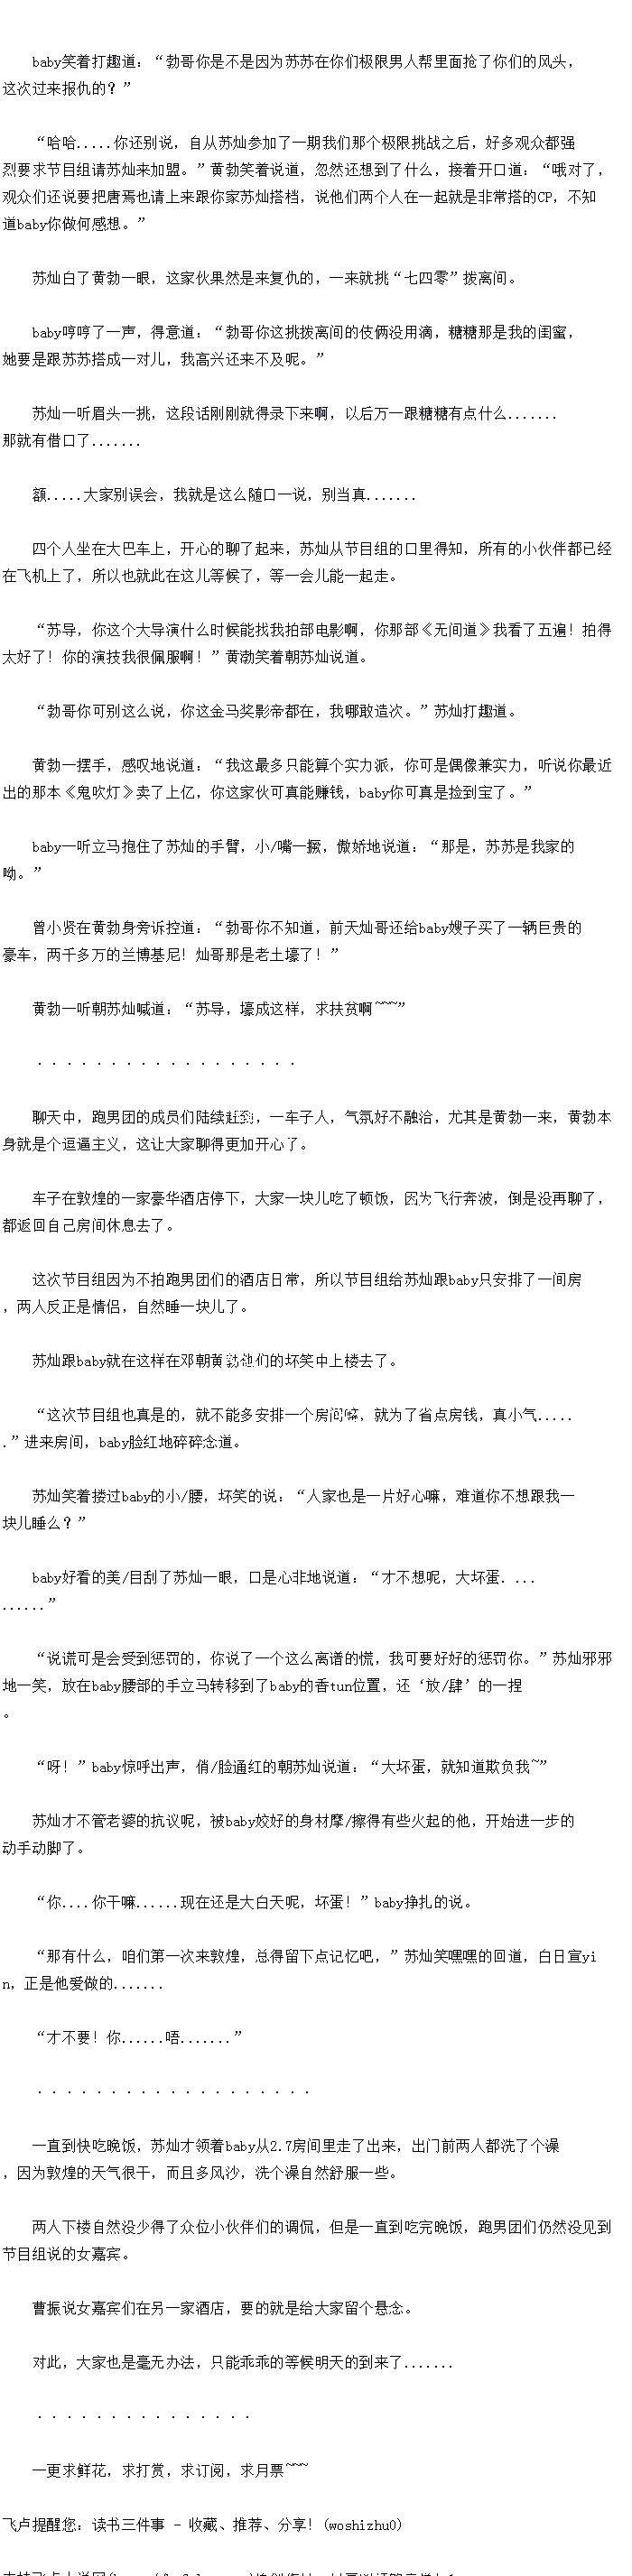 baby笑着打趣道：“勃哥你是不是因为苏苏在你们极限男人帮里面抢了你们的风头，
这次过来报仇的？”
“哈哈.....你还别说，自从苏灿参加了一期我们那个极限挑战之后，好多观众都强
烈要求节目组请苏灿来加盟。”黄勃笑着说道，忽然还想到了什么，接着开口道：“哦对了，
观众们还说要把唐焉也请上来跟你家苏灿搭档，说他们两个人在一起就是非常搭的CP，不知
道baby你做何感想。”
苏灿白了黄勃一眼，这家伙果然是来复仇的，一来就挑“七四零”拨离间。
baby哼哼了一声，得意道：“勃哥你这挑拨离间的伎俩没用滴，糖糖那是我的闺蜜，
她要是跟苏苏搭成一对儿，我高兴还来不及呢。”
苏灿一听眉头一挑，这段话刚刚就得录下来啊，以后万一跟糖糖有点什么.......
那就有借口了.......
额.....大家别误会，我就是这么随口一说，别当真.......
四个人坐在大巴车上，开心的聊了起来，苏灿从节目组的口里得知，所有的小伙伴都已经
在飞机上了，所以也就此在这儿等候了，等一会儿能一起走。
“苏导，你这个大导演什么时候能找我拍部电影啊，你那部《无间道》我看了五遍！拍得
太好了！你的演技我很佩服啊！”黄渤笑着朝苏灿说道。
“勃哥你可别这么说，你这金马奖影帝都在，我哪敢造次。”苏灿打趣道。
黄勃一摆手，感叹地说道：“我这最多只能算个实力派，你可是偶像兼实力，听说你最近
出的那本《鬼吹灯》卖了上亿，你这家伙可真能赚钱，baby你可真是捡到宝了。”
baby一听立马抱住了苏灿的手臂，小/嘴一撅，傲娇地说道：“那是，苏苏是我家的
呦。”
曾小贤在黄勃身旁诉控道：“勃哥你不知道，前天灿哥还给baby嫂子买了一辆巨贵的
豪车，两千多万的兰博基尼！灿哥那是老土壕了！”
黄勃一听朝苏灿喊道：“苏导，壕成这样，求扶贫啊~~~”
．．．．．．．．．．．．．．．．．．
聊天中，跑男团的成员们陆续赶到，一车子人，气氛好不融洽，尤其是黄勃一来，黄勃本
身就是个逗逼主义，这让大家聊得更加开心了。
车子在敦煌的一家豪华酒店停下，大家一块儿吃了顿饭，因为飞行奔波，倒是没再聊了，
都返回自己房间休息去了。
这次节目组因为不拍跑男团们的酒店日常，所以节目组给苏灿跟baby只安排了一间房
，两人反正是情侣，自然睡一块儿了。
苏灿跟baby就在这样在邓朝黄勃他们的坏笑中上楼去了。
“这次节目组也真是的，就不能多安排一个房间嘛，就为了省点房钱，真小气.....
.”进来房间，baby脸红地碎碎念道。
苏灿笑着搂过baby的小/腰，坏笑的说：“人家也是一片好心嘛，难道你不想跟我一
块儿睡么？”
baby好看的美/目刮了苏灿一眼，口是心非地说道：“才不想呢，大坏蛋. ...
......”
“说谎可是会受到惩罚的，你说了一个这么离谱的慌，我可要好好的惩罚你。”苏灿邪邪
地一笑，放在baby腰部的手立马转移到了baby的香tun位置，还‘放/肆’的一捏
。
“呀！”baby惊呼出声，俏/脸通红的朝苏灿说道：“大坏蛋，就知道欺负我~”
苏灿才不管老婆的抗议呢，被baby姣好的身材摩/擦得有些火起的他，开始进一步的
动手动脚了。
“你....你干嘛......现在还是大白天呢，坏蛋！”baby挣扎的说。
“那有什么，咱们第一次来敦煌，总得留下点记忆吧，”苏灿笑嘿嘿的回道，白日宣yi
n，正是他爱做的.......
“才不要！你......唔.......”
．．．．．．．．．．．．．．．．．．．
一直到快吃晚饭，苏灿才领着baby从2.7房间里走了出来，出门前两人都洗了个澡
，因为敦煌的天气很干，而且多风沙，洗个澡自然舒服一些。
两人下楼自然没少得了众位小伙伴们的调侃，但是一直到吃完晚饭，跑男团们仍然没见到
节目组说的女嘉宾。
曹振说女嘉宾们在另一家酒店，要的就是给大家留个悬念。
对此，大家也是毫无办法，只能乖乖的等候明天的到来了.......
．．．．．．．．．．．．．．．
一更求鲜花，求打赏，求订阅，求月票~~~
飞卢提醒您：读书三件事 - 收藏、推荐、分享！(woshizhu0)